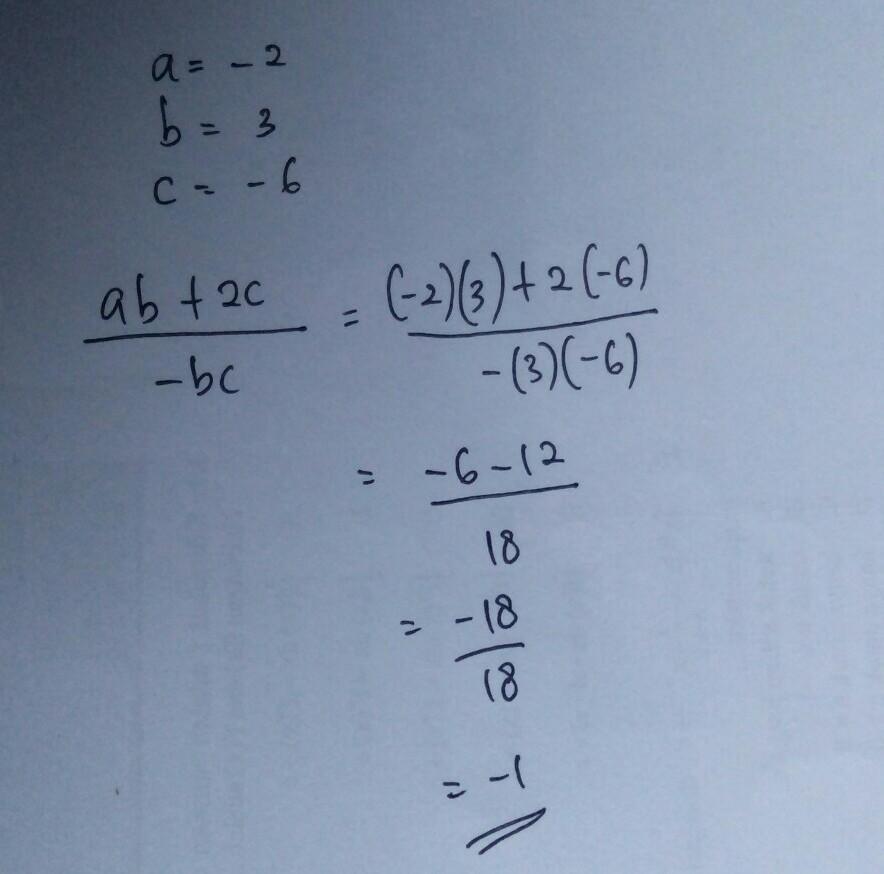 a = -2
b = 3
c = -6
ab + 2c / -bc = (-2)(3) + 2(-6) / -(3)(-6)
= -6 - 12 / 18
= -18 / 18
= -1